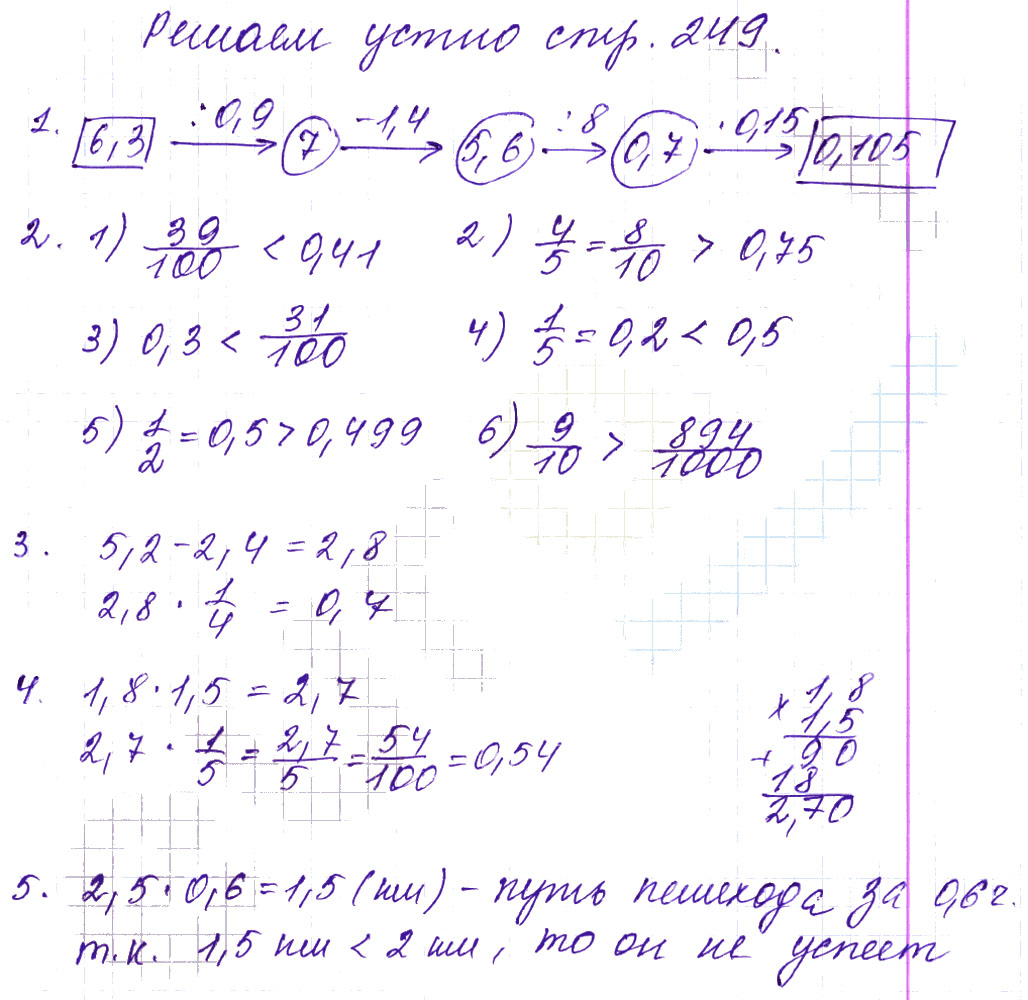 Решаем устно стр. 249.
1. 6,3 :0,9 → 7 -1,4 → 5,6 :8 → 0,7 ·0,15 → 0,105
2. 1) 39/100 < 0,41 2) 4/5 = 8/10 > 0,75
3) 0,3 < 31/100 4) 1/5 = 0,2 < 0,5
5) 1/2 = 0,5 > 0,499 6) 9/10 > 894/1000
3. 5,2 - 2,4 = 2,8
2,8 · 1/4 = 0,7
4. 1,8 · 1,5 = 2,7
2,7 · 1/5 = 2,7/5 = 54/100 = 0,54
× 1,8
1,5
+ 90
18
2,70
5. 2,5 · 0,6 = 1,5 (км) - путь пешехода за 0,6 ч.
т.к. 1,5 км < 2 км, то он не успеет